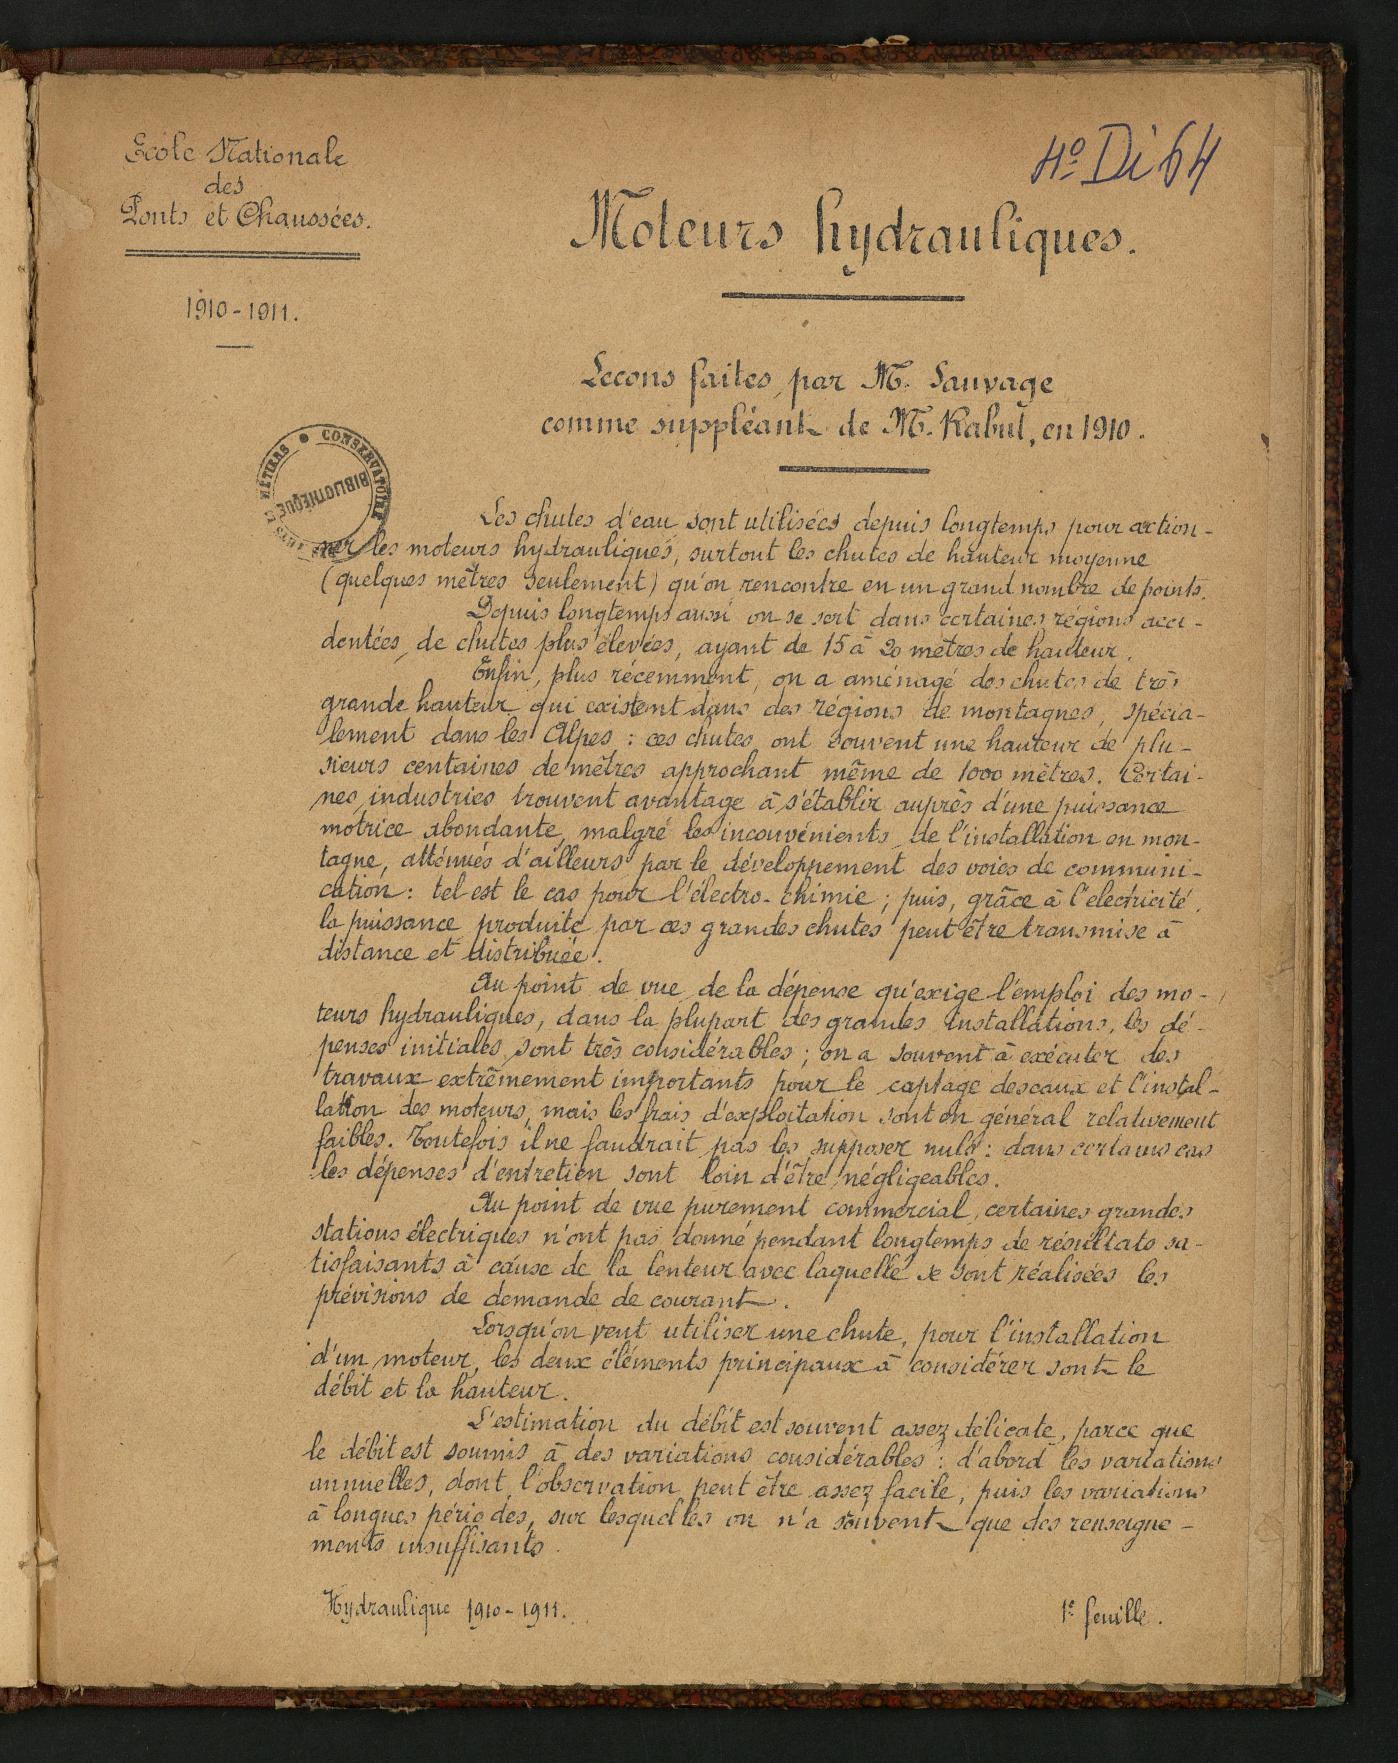 École Nationale
des
Ponts et Chaussées.
1910-1911.
4º Di 64
Moteurs hydrauliques.
Leçons faites par M. Sauvage
comme suppléant de M. Rabut, en 1910.
CONSERVATOIRE
BIBLIOTHÈQUE
MÉTIERS
Les chutes d'eau sont utilisées depuis longtemps pour action-
ner les moteurs hydrauliques, surtout les chutes de hauteur moyenne
(quelques mètres seulement) qu'on rencontre en un grand nombre de points.
Depuis longtemps aussi on se sert dans certaines régions acci-
dentées, de chutes plus élevées, ayant de 15 à 20 mètres de hauteur.
Enfin, plus récemment, on a aménagé des chutes de très
grande hauteur qui existent dans des régions de montagnes, spécia-
lement dans les Alpes : ces chutes ont souvent une hauteur de plu-
sieurs centaines de mètres approchant même de 1000 mètres. Certai-
nes industries trouvent avantage à s'établir auprès d'une puissance
motrice abondante, malgré les inconvénients de l'installation en mon-
tagne, atténués d'ailleurs par le développement des voies de communi-
cation : tel est le cas pour l'électro-chimie ; puis, grâce à l'électricité,
la puissance produite par ces grandes chutes peut être transmise à
distance et distribuée.
Au point de vue de la dépense qu'exige l'emploi des mo-
teurs hydrauliques, dans la plupart des grandes installations, les dé-
penses initiales sont très considérables ; on a souvent à exécuter des
travaux extrêmement importants pour le captage des eaux et l'instal-
lation des moteurs, mais les frais d'exploitation sont en général relativement
faibles. Toutefois il ne faudrait pas les supposer nuls : dans certains cas
les dépenses d'entretien sont loin d'être négligeables.
Au point de vue purement commercial, certaines grandes
stations électriques n'ont pas donné pendant longtemps de résultats sa-
tisfaisants à cause de la lenteur avec laquelle se sont réalisées les
prévisions de demande de courant.
Lorsqu'on veut utiliser une chute, pour l'installation
d'un moteur, les deux éléments principaux à considérer sont le
débit et la hauteur.
L'estimation du débit est souvent assez délicate, parce que
le débit est soumis à des variations considérables : d'abord les variations
annuelles, dont l'observation peut être assez facile, puis les variations
à longues périodes, sur lesquelles on n'a souvent que des renseigne-
ments insuffisants.
Hydraulique 1910-1911.
1e feuille.